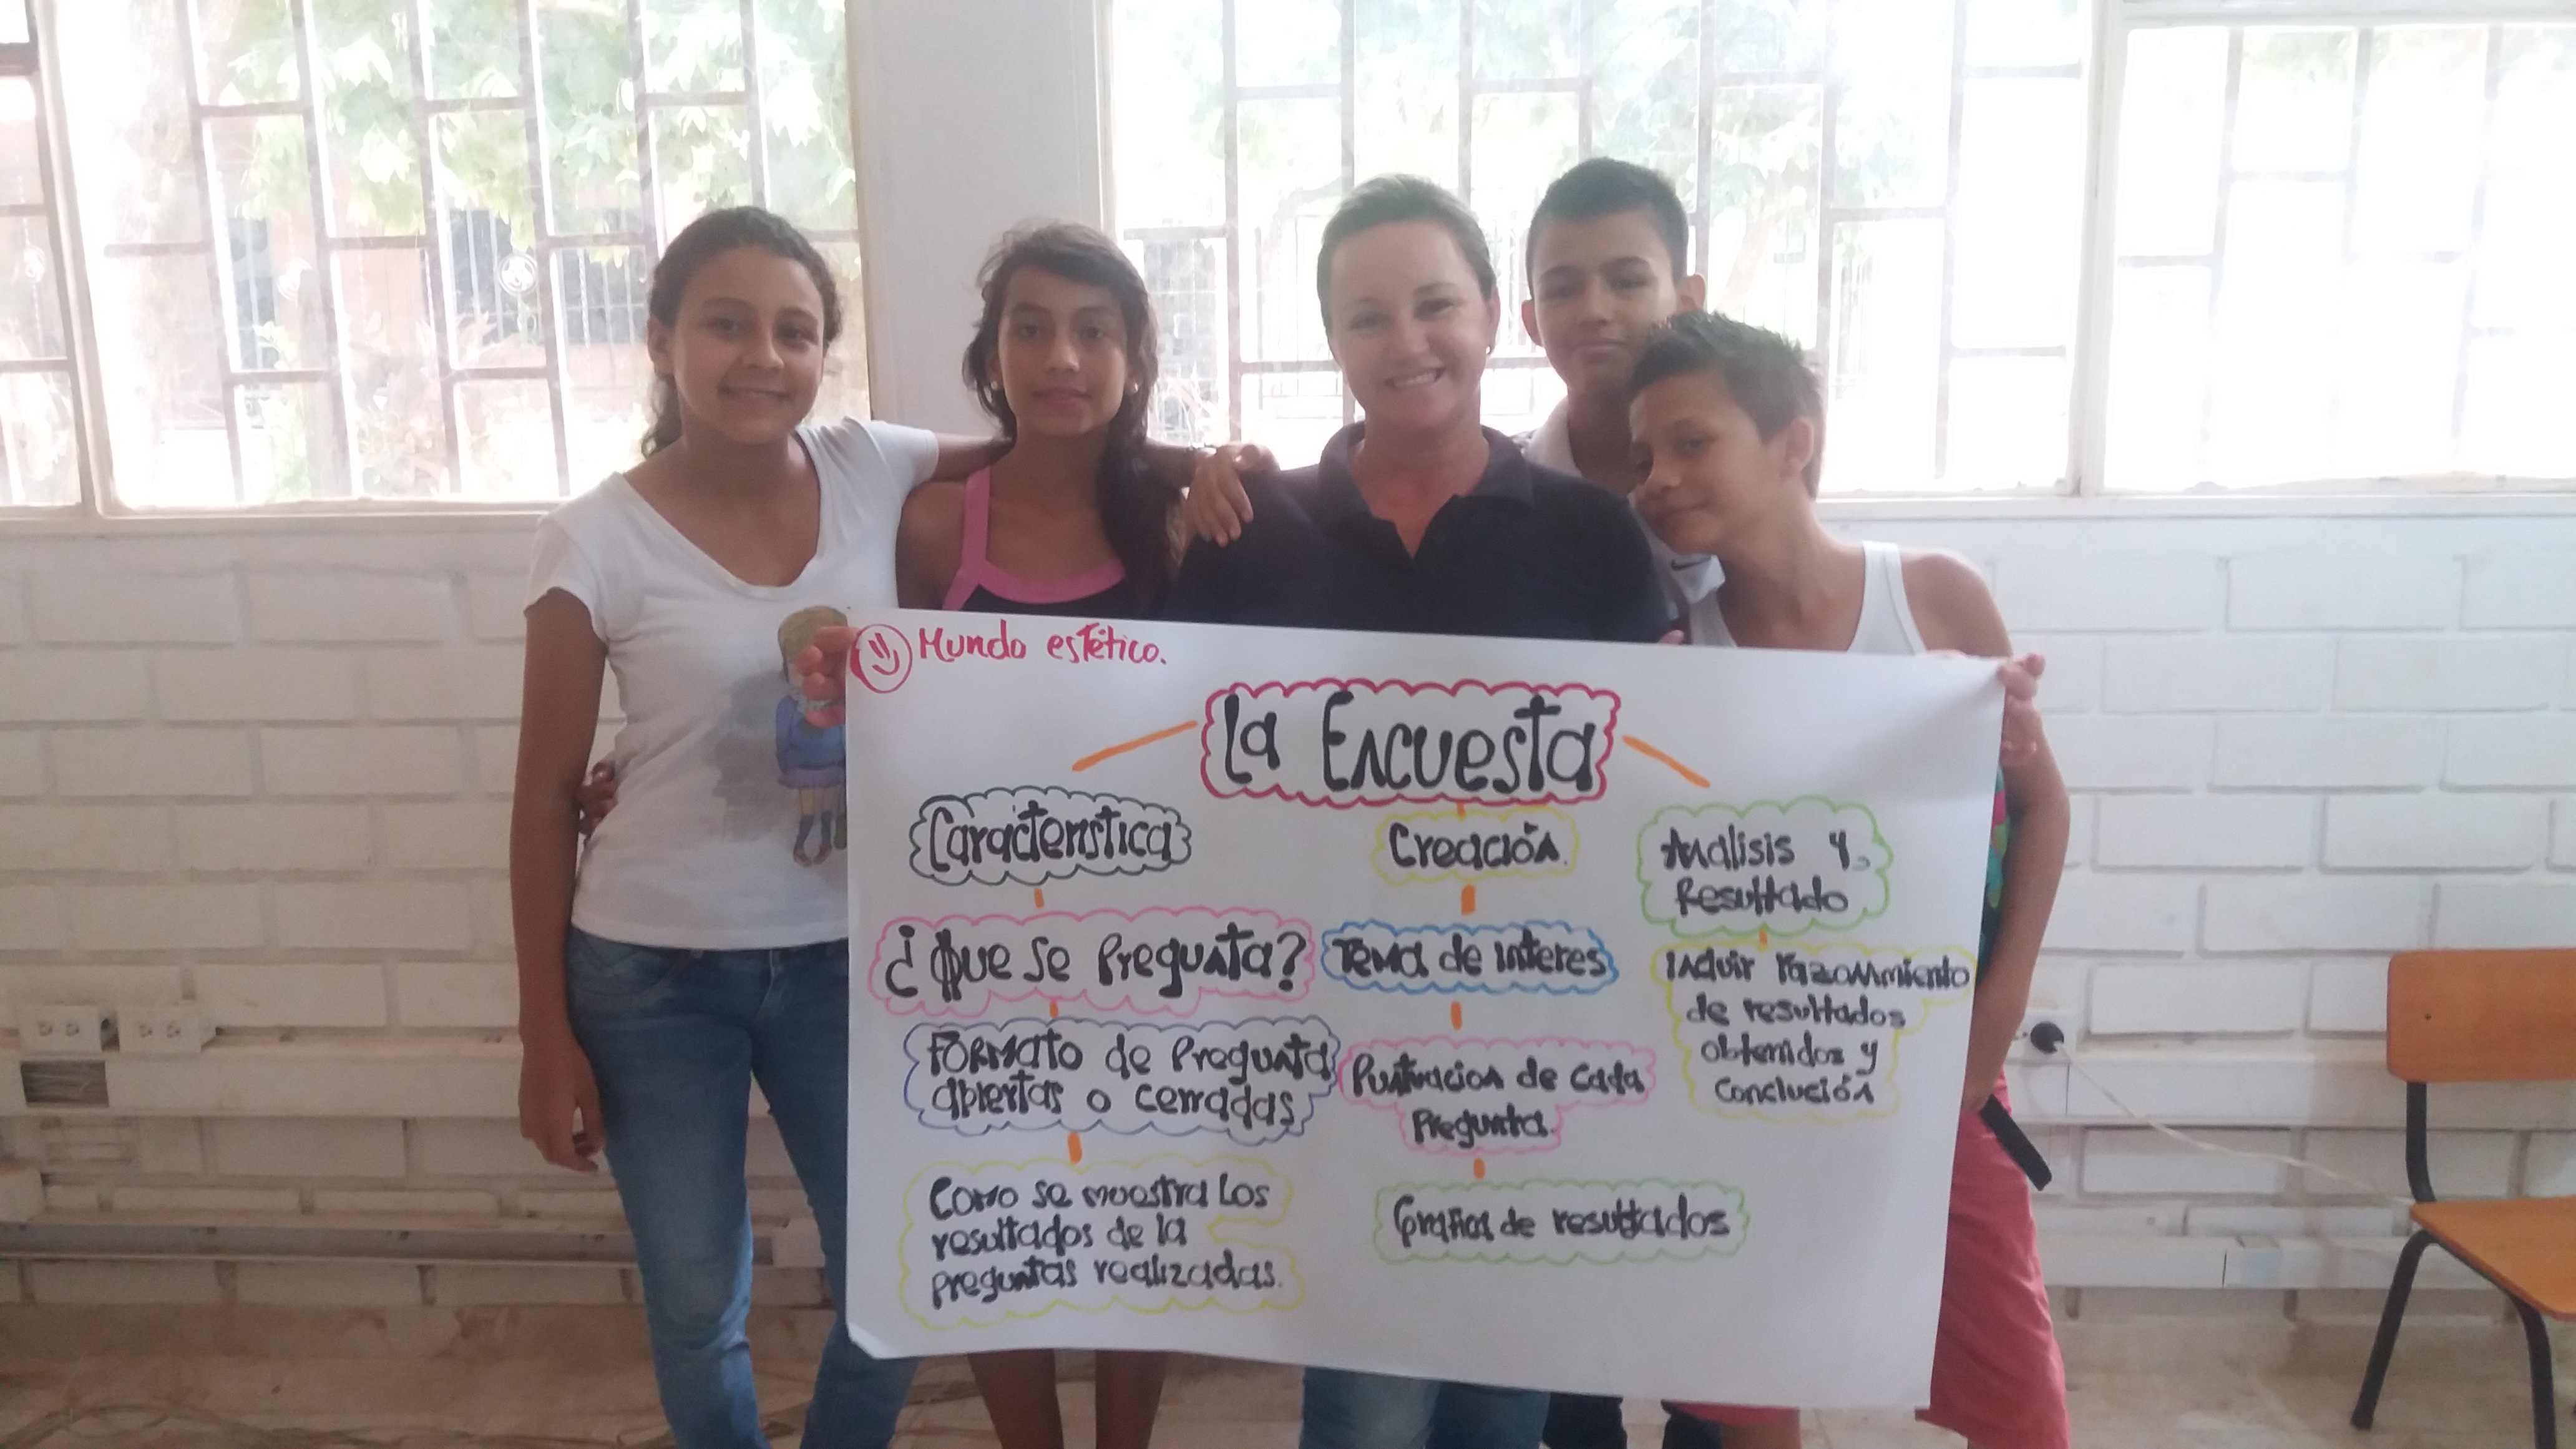 Mundo estético.
La Encuesta
Caracteristica
¿Que se Pregunta?
Formato de Pregunta
abiertas o cerradas
Como se muestra los
resultados de la
preguntas realizadas.
Creación.
Tema de interes
Puntuacion de cada
Pregunta.
Grafica de resultados
Analisis y
Resultado
Incluir razonamiento
de resultados
obtenidos y
Conclución